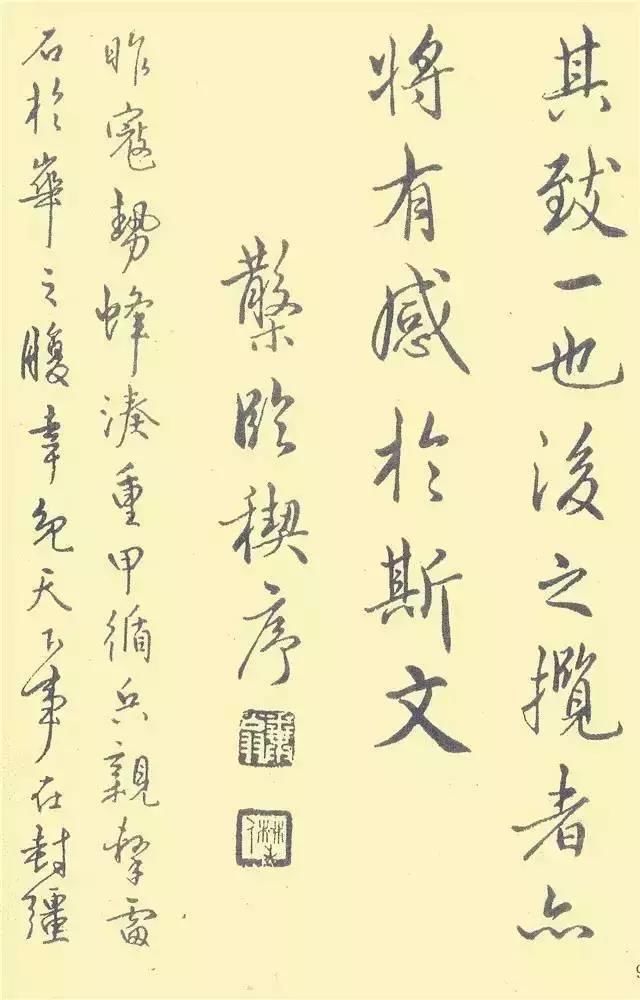 其致一也後之攬者亦
將有感於斯文
散木臨禊序
昨寇勢蜂湊重甲循兵親雷
石於華之腹幸免天下事在封疆